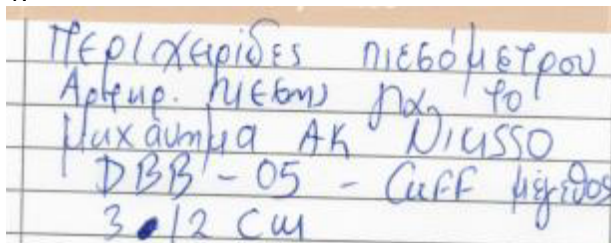 Περιχειρίδες πιεσόμετρου
Αρτηρ. πιεσης για το
μηχάνημα ΑΚ Nicusso
DBB - 05 - Cuff μέγεθος
3 12 cm